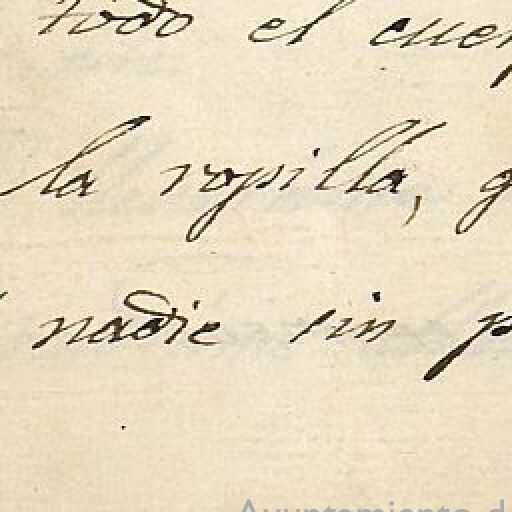 todo el cuer
la ropilla, g
nadie sin p
Ayuntamiento de